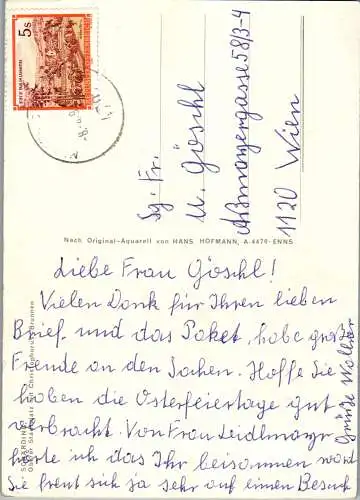 5s
REPUBLIK ÖSTERREICH
Sg. Fr.
U. Göschl
Aßmayergasse 58/3-4
1120 Wien
Nach Original-Aquarell von HANS HOFMANN, A-4470-ENNS
Liebe Frau Göschl!
Vielen Dank für Ihren lieben
Brief und das Paket, habe große
Freude an den Sachen. Hoffe Sie
haben die Osterfeiertage gut
verbracht. Von Frau Leidlmayr
hörte ich das Ihr beisammen ward
Sie freut sich ja sehr auf einen Besuch
Grüße Walter
SCHÄRDING
Oberer Stadtplatz mit Christophorus-Brunnen